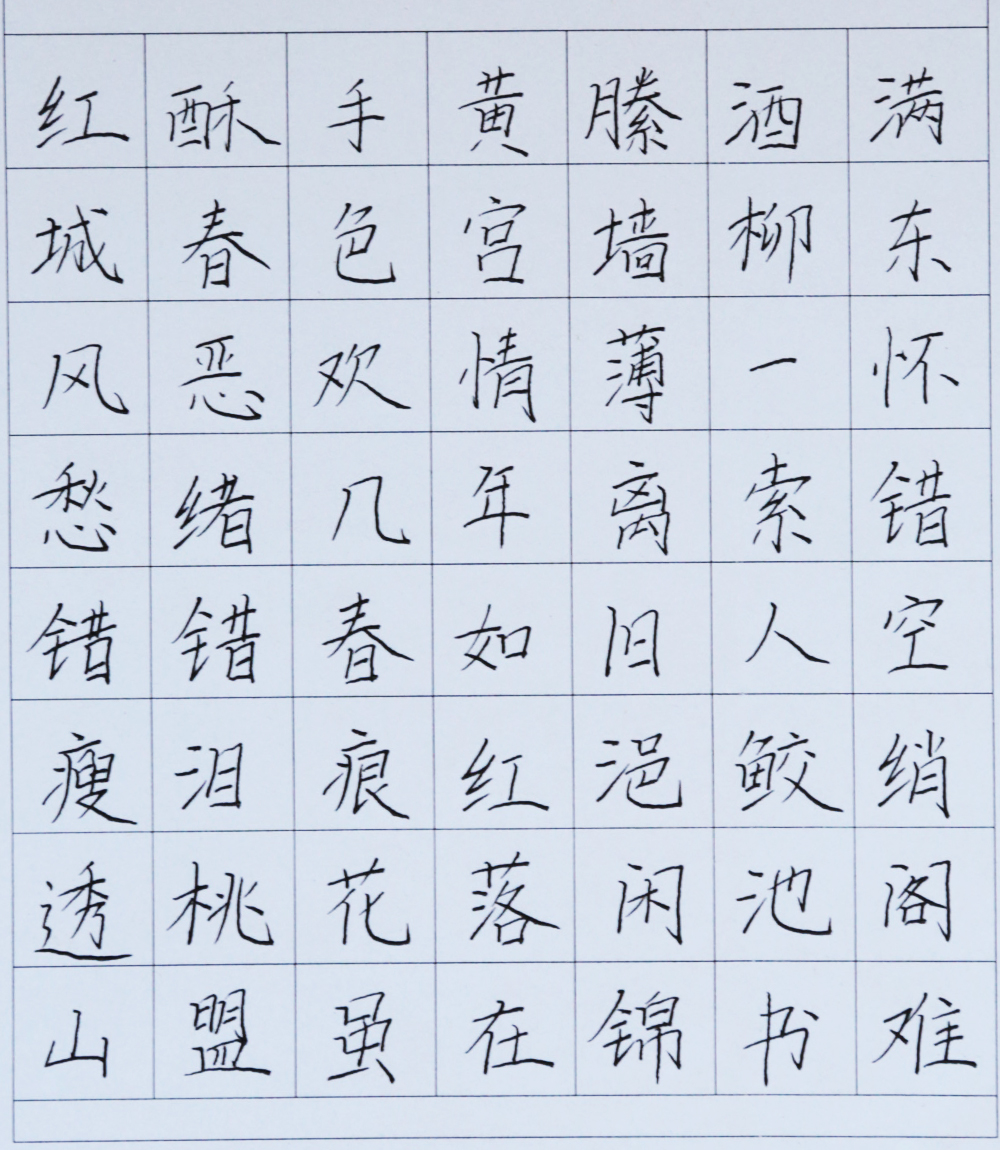 红酥手黄縢酒满
城春色宫墙柳东
风恶欢情薄一怀
愁绪几年离索错
错错春如旧人空
瘦泪痕红浥鲛绡
透桃花落闲池阁
山盟虽在锦书难